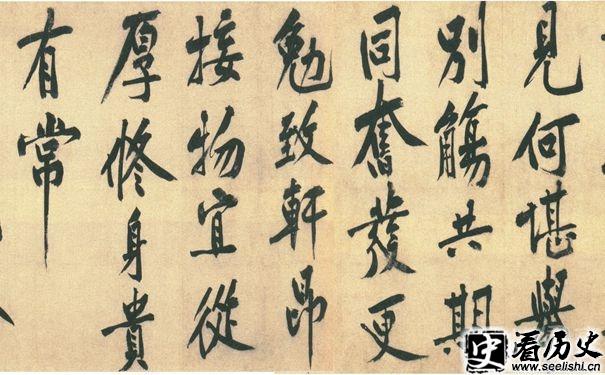 見何堪舉
別觴共期
同奮發更
勉致軒昂
接物宜從
厚修身貴
有常
史 看历史
www.seelishi.cn